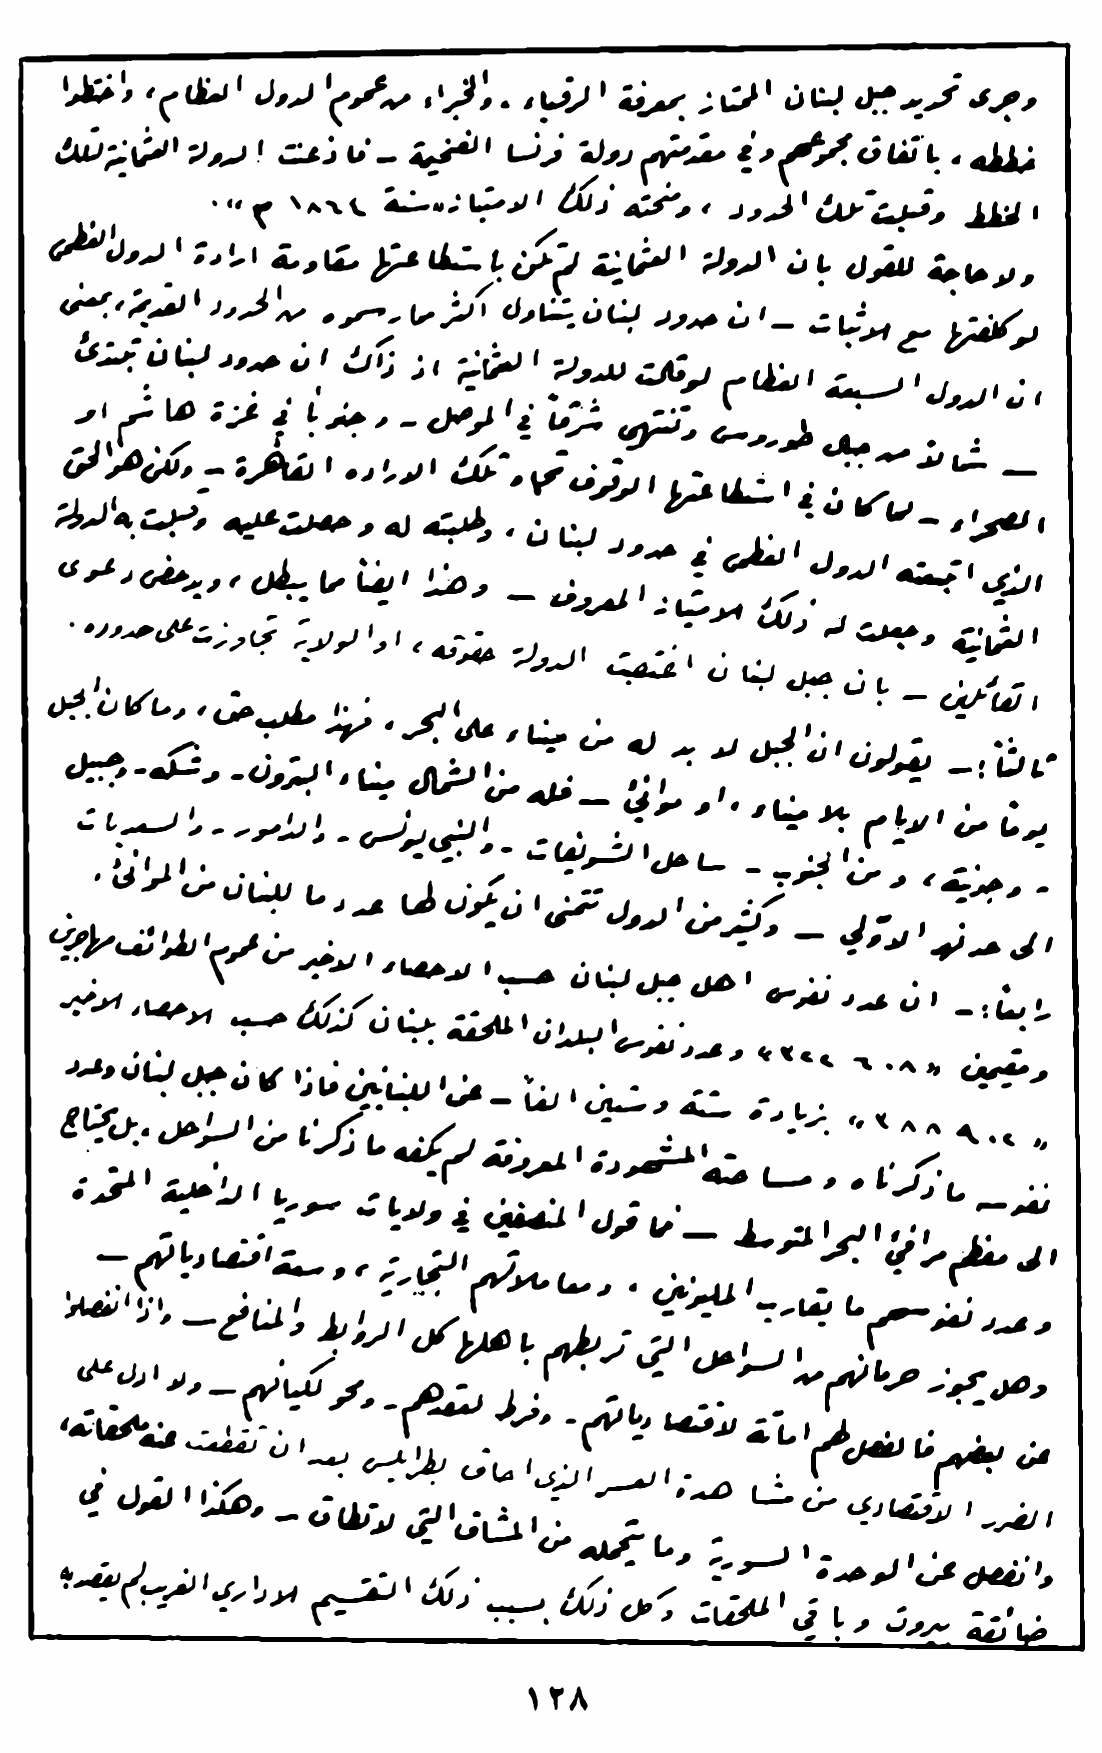 وجرى تحديد جبل لبنان الممتاز بمعرفة الرقباء . والخبراء من عموم الدول العظام ، واختطوا
خططه ، باتفاق مجموعهم وفي مقدمتهم دولة فرنسا الفخيمة ــ فاذعنت الدولة العثمانية لتلك
الخطط وقبلت تلك الحدود ، ومنحته ذلك الامتياز «سنة ١٨٦٤ م» .
ولا حاجة للقول بان الدولة العثمانية لم تكن باستطاعتها مقاومة ارادة الدول العظمى
لو كلفتها مع الاثبات ــ ان حدود لبنان يتناول اكثر مما رسموه من الحدود القديمة ، بمعنى
ان الدول السبعة العظام لو قالت للدولة العثمانية اذ ذاك ان حدود لبنان تبتدئ
ــ شمالاً من جبال طوروس وتنتهي شرقاً في الموصل ــ وجنوباً في غزة هاشم او
الصحراء ــ لما كان في استطاعتها الوقوف تجاه تلك الاراده القاهرة ــ ولكن هو الحق
الذي اتبعته الدول العظمى في حدود لبنان ، وطلبته له وحصلت عليه وقبلت به الدولة
العثمانية وجعلت له ذلك الامتياز المعروف ــ وهذا ايضاً مما يبطل ، ويدحض دعوى
القائلين ــ بان جبل لبنان اغتصبت الدولة حقوقه ، او الولاية تجاوزت على حدوده .
ثالثاً : ــ يقولون ان الجبل لا بد له من ميناء على البحر ، فهذا مطلب حق ، وما كان الجبل
يوماً من الايام بلا ميناء ، او موانئ ــ فله من الشمال ميناء البترون ــ وشكه ــ وجبيل
ــ وجونية ، ومن الجنوب ــ ساحل الشويفات ــ والنبي يونس ــ والدامور ــ والسعديات
الى حد نهر الاولي ــ وكثير من الدول تتمنى ان يكون لها عدد ما للبنان من الموانئ .
رابعاً : ــ ان عدد نفوس اهل جبل لبنان حسب الاحصاء الاخير من عموم الطوائف مهاجرين
ومقيمين «٣٢٢٦٠٨» وعدد نفوس البلدان الملحقة بلبنان كذلك حسب الاحصاء الاخير
«٣٨٨٩٠٢» بزيادة ستة وستين الفاً ــ عن اللبنانيين فاذا كان جبل لبنان وعدد
نفوسه ما ذكرناه ومساحته المشهودة المعروفة لم يكفه ما ذكرنا من السواحل ، بل يحتاج
الى معظم مرافئ البحر المتوسط ــ فما قول المنصفين في ولايات سوريا الداخلية المتحدة
وعدد نفوسهم ما يقارب المليونين ، ومعاملاتهم التجارية ، وسعة اقتصادياتهم ــ
وهل يجوز حرمانهم من السواحل التي تربطهم باهلها كل الروابط والمنافع ــ واذا انفصلوا
عن بعضهم فالفصل لهم اماتة لاقتصادياتهم ــ وفرط لعقدهم ــ ومحو لكيانهم ــ ولا ادل على
الضرر الاقتصادي من مشاهدة العسر الذي احاق بطرابلس بعد ان تقطعت عنه ملحقاته ،
وانفصل عن الوحدة السورية وما يتحمله من المشاق التي لا تطاق ــ وهكذا القول في
ضائقة بيروت وباقي الملحقات وكل ذلك بسبب ذلك التقسيم الاداري الغريب لم يقصد به
١٢٨